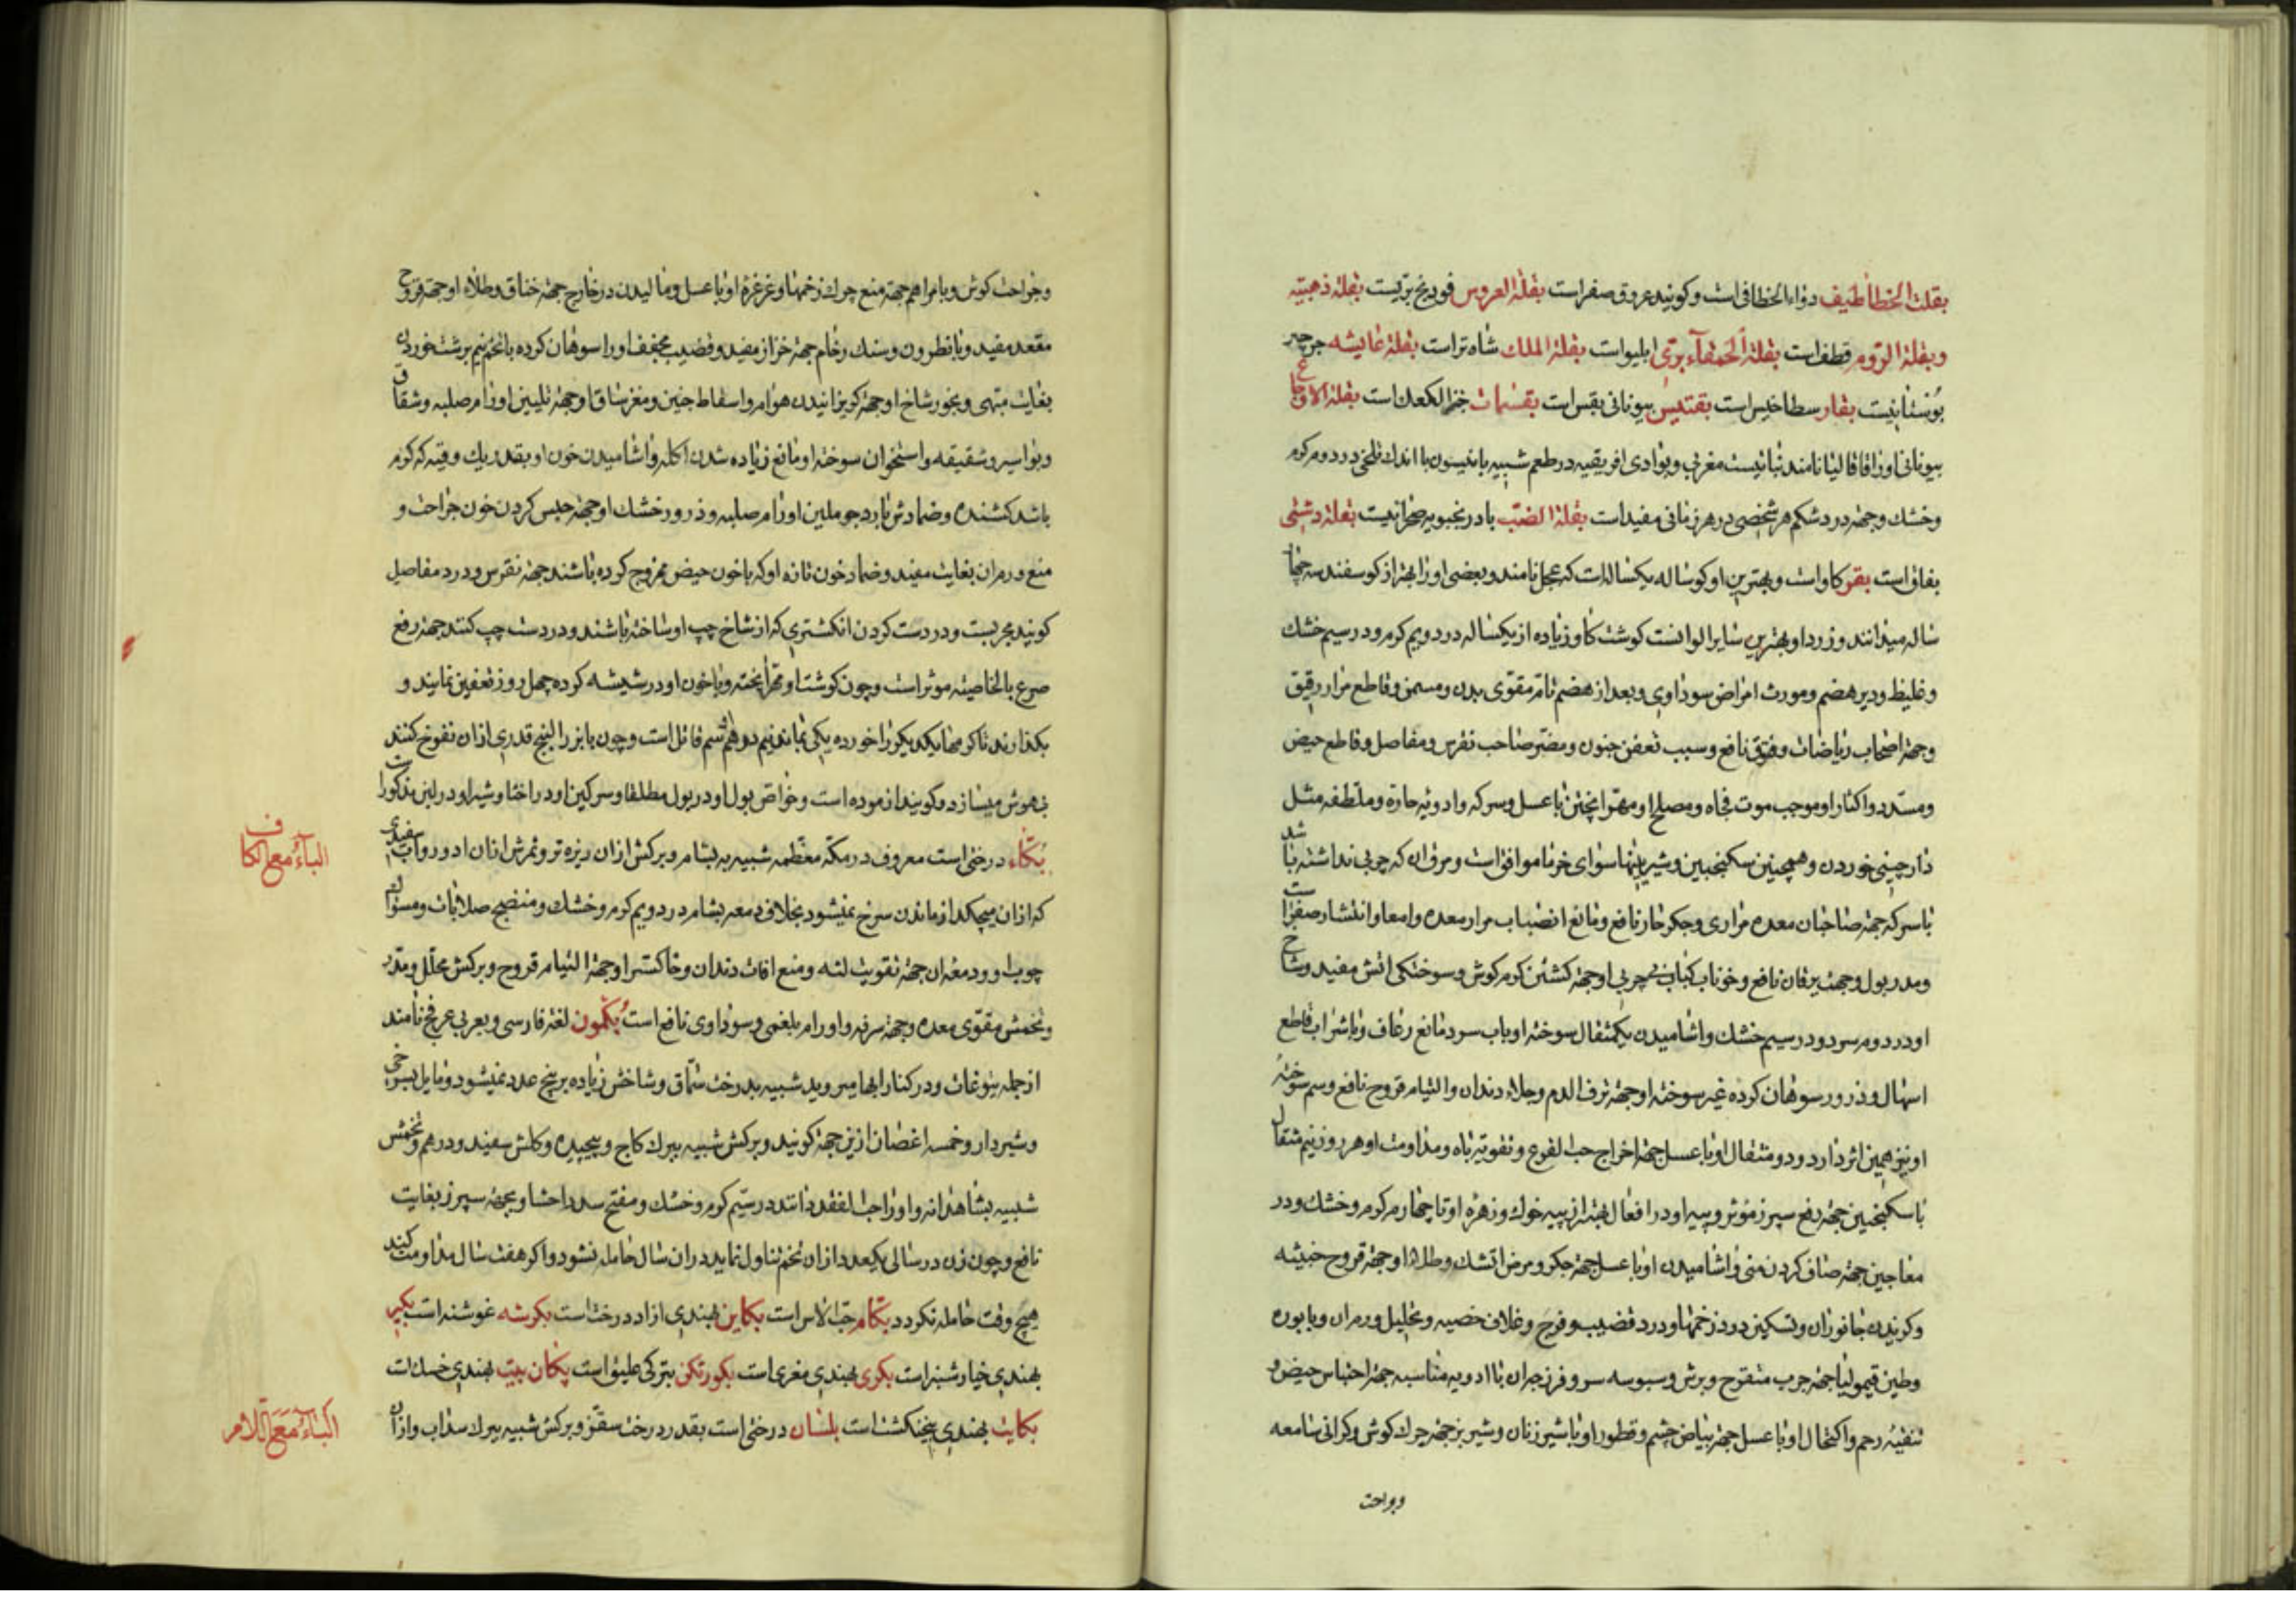 بقلت الخطاطیف دواء الخطافی است و کویند عروق صفر است بقلة العروس فودنج بریست بقلهٔ ذهبیه
وبقلة الروم قطف است بقلة الحمقاء بری ابلیو است بقلة الملك شاه تراست بقلهٔ عایشه جرجیر
بوستانیست بقار سطاخیس است بقتیس بیونانی بقس است بقسمات خبز الکعک است بقلة الاوجاع
بیونانی اورا قاقالیا نامند نباتیست مغربی وبوادی افریقیه در طعم شبیه بانیسون با اندك تلخی در دوم کرم
وخشك وجهة درد شکم هر شخصی در هر زمانی مفید است بقلة الضب بادرنجبویه صحرائیست بقلهٔ دشتی
بقر کاو است وبهترین او کوساله یکساله است که عجل نامند وبعضی اورا بهتر از کوسفند سه چهار
ساله میدانند وزرد او بهترین سایر الوانست کوشت کاو زیاده از یکساله در دویم کرم ودر سیم خشك
وغلیظ ودیر هضم ومورث امراض سوداوی وبعد از هضم تام مقوی بدن ومسمن وقاطع مرار رقیق
وجهة اصحاب ریاضات وفتوق نافع وسبب تعفن جنون ومضر صاحب نقرس ومفاصل وقاطع حیض
ومسدد واکثار او موجب موت فجاه ومصلح او مهرا پختن با عسل وسرکه وادویهٔ حاره وملطفه مثل
دارچینی خوردن وهمچنین سکنجبین وشیرینیها سوای خرما موافق است ومرق ان که چربی نداشته باشد
با سرکه جهة صاحبان معده مراری وجکر حار نافع ومانع انصباب مرار معده وامعا وانتشار صفرا است
ومدر بول وجهة یرقان نافع وخوناب کباب بی چربی او جهة کشتن کرم کوش وسوختکی اتش مفید وشاخ
او در دوم سرد ودر سیم خشك واشامیدن یکمثقال سوختهٔ او باب سرد مانع رعاف وبا شراب قاطع
اسهال وذرور سوهان کرده غیر سوختهٔ او جهة نزف الدم وجلاء دندان والتیام قروح نافع وسم سوختهٔ
او نیز همین اثر دارد ودو مثقال او با عسل جهة اخراج حب القرع وتقویة باه ومداومت او هر روز نیم مثقال
با سکنجبین جهة رفع سپرز مؤثر وپیه او در افعال بهتر از پیه خوك وزهره او تا چهارم کرم وخشك ودر
معاجین جهة صاف کردن منی واشامیدن او با عسل جهة جکر ومرض اتشك وطلاء او جهة قروح خبیثه
وکزیدن جانوران وتسکین درد زخمها ودرد قضیب وفرج وغلاف خصیه وتحلیل ورم ان وبا بوره
وطین قیمولیا جهة جرب متقرح وبرش وسبوسه سر وفرزجه ان با ادویه مناسبه جهة احتباس حیض و
تنقیهٔ رحم واکتحال او با عسل جهة بیاض چشم وقطور او با شیر زنان وشیر بز جهة چرك کوش وکرانی سامعه
وجراحت
وجراحت کوش وبا مراهم جهة منع چرك زخمها وغرغرهٔ او با عسل ومالیدن در خارج جهة خناق وطلاء او جهة قروح
مقعد مفید وبا نطرون وسنك رخام جهة خزاز مفید وقضیب مجفف اورا سوهان کرده با تخم نیم برشت خوردن
بغایت مبهی وبخور شاخ او جهة کریزانیدن هوام واسقاط جنین ومغز ساق او جهة تلیین اورام صلبه وشقاق
وبواسیر وشقیقه واستخوان سوختهٔ او مانع زیاده شدن اکله واشامیدن خون او بقدر یك وقیه که کرم
باشد کشنده وضمادش بارد جو ملین اورام صلبه وذرور خشك او جهة حبس کردن خون جراحت و
منع ورم ان بغایت مفید وضماد خون تازه او که با خون حیض ممزوج کرده باشند جهة نقرس ودرد مفاصل
کویند مجربست ودر دست کردن انکشتری که از شاخ چپ او ساخته باشند ودر دست چپ کنند جهة رفع
صرع بالخاصیة موثر است وچون کوشت او مهرا پخته وبا خون او در شیشه کرده چهل روز تعفین نمایند و
بکذارند تا کرمها یکدیکر را خورده یکی بماند نیم درهم اش سم قاتل است وچون با بزر البنج قدری ازان نفوخ کنند
بیهوش میسازد وکویند ازموده است وخواص بول او در بول مطلقا وسرکین او در اخثا وشیر او در لبن مذکور است
بکاء درختی است معروف در مکهٔ معظمه شبیه به بشام وبرکش ازان ریزه تر وثمرش ازان ادور واب سفیدی
که ازان میچکد از ماندن سرخ نمیشود بخلاف دمعه بشام در دویم کرم وخشك ومنضج صلابات ومسواك
چوب او ودمعهٔ ان جهة تقویت لثه ومنع افات دندان وخاکستر او جهة التیام قروح وبرکش محلل ومدر
وتخمش مقوی معده وجهة سرفه واورام بلغمی وسوداوی نافع است بکمون لغة فارسی وبعربی عرفج نامند
از جمله یتوعات ودر کنار ابها میروید شبیه بدرخت سماق وشاخش زیاده بر پنج عدد نمیشود ومایل بسرخی
وشیردار وخمسه اغصان ازین جهة کویند وبرکش شبیه ببرك کاج وپیچیده وکلش سفید ودرهم وتخمش
شبیه بشاهدانه واورا حب الفقد دانند در سیم کرم وخشك ومفتح سدد احشا وجهة سپرز بغایت
نافع وچون زن در سالی یکعدد ازان تخم تناول نماید دران سال حامله نشود واکر هفت سال مداومت کند
هیچ وقت حامله نکردد بکام حب الاس است بکاین بهندی ازاد درخت است بکرشه غوشنه است بکیر
بهندی خیار شنبر است بکری بهندی مغری است بکورتکن بترکی علیق است پکان بیت بهندی خسك است
بکایت بهندی پنجنکشت است بلسان درختی است بقدر درخت سقز وبرکش شبیه ببرك سداب وازان
الباء مع الکاف
الباء مع اللام